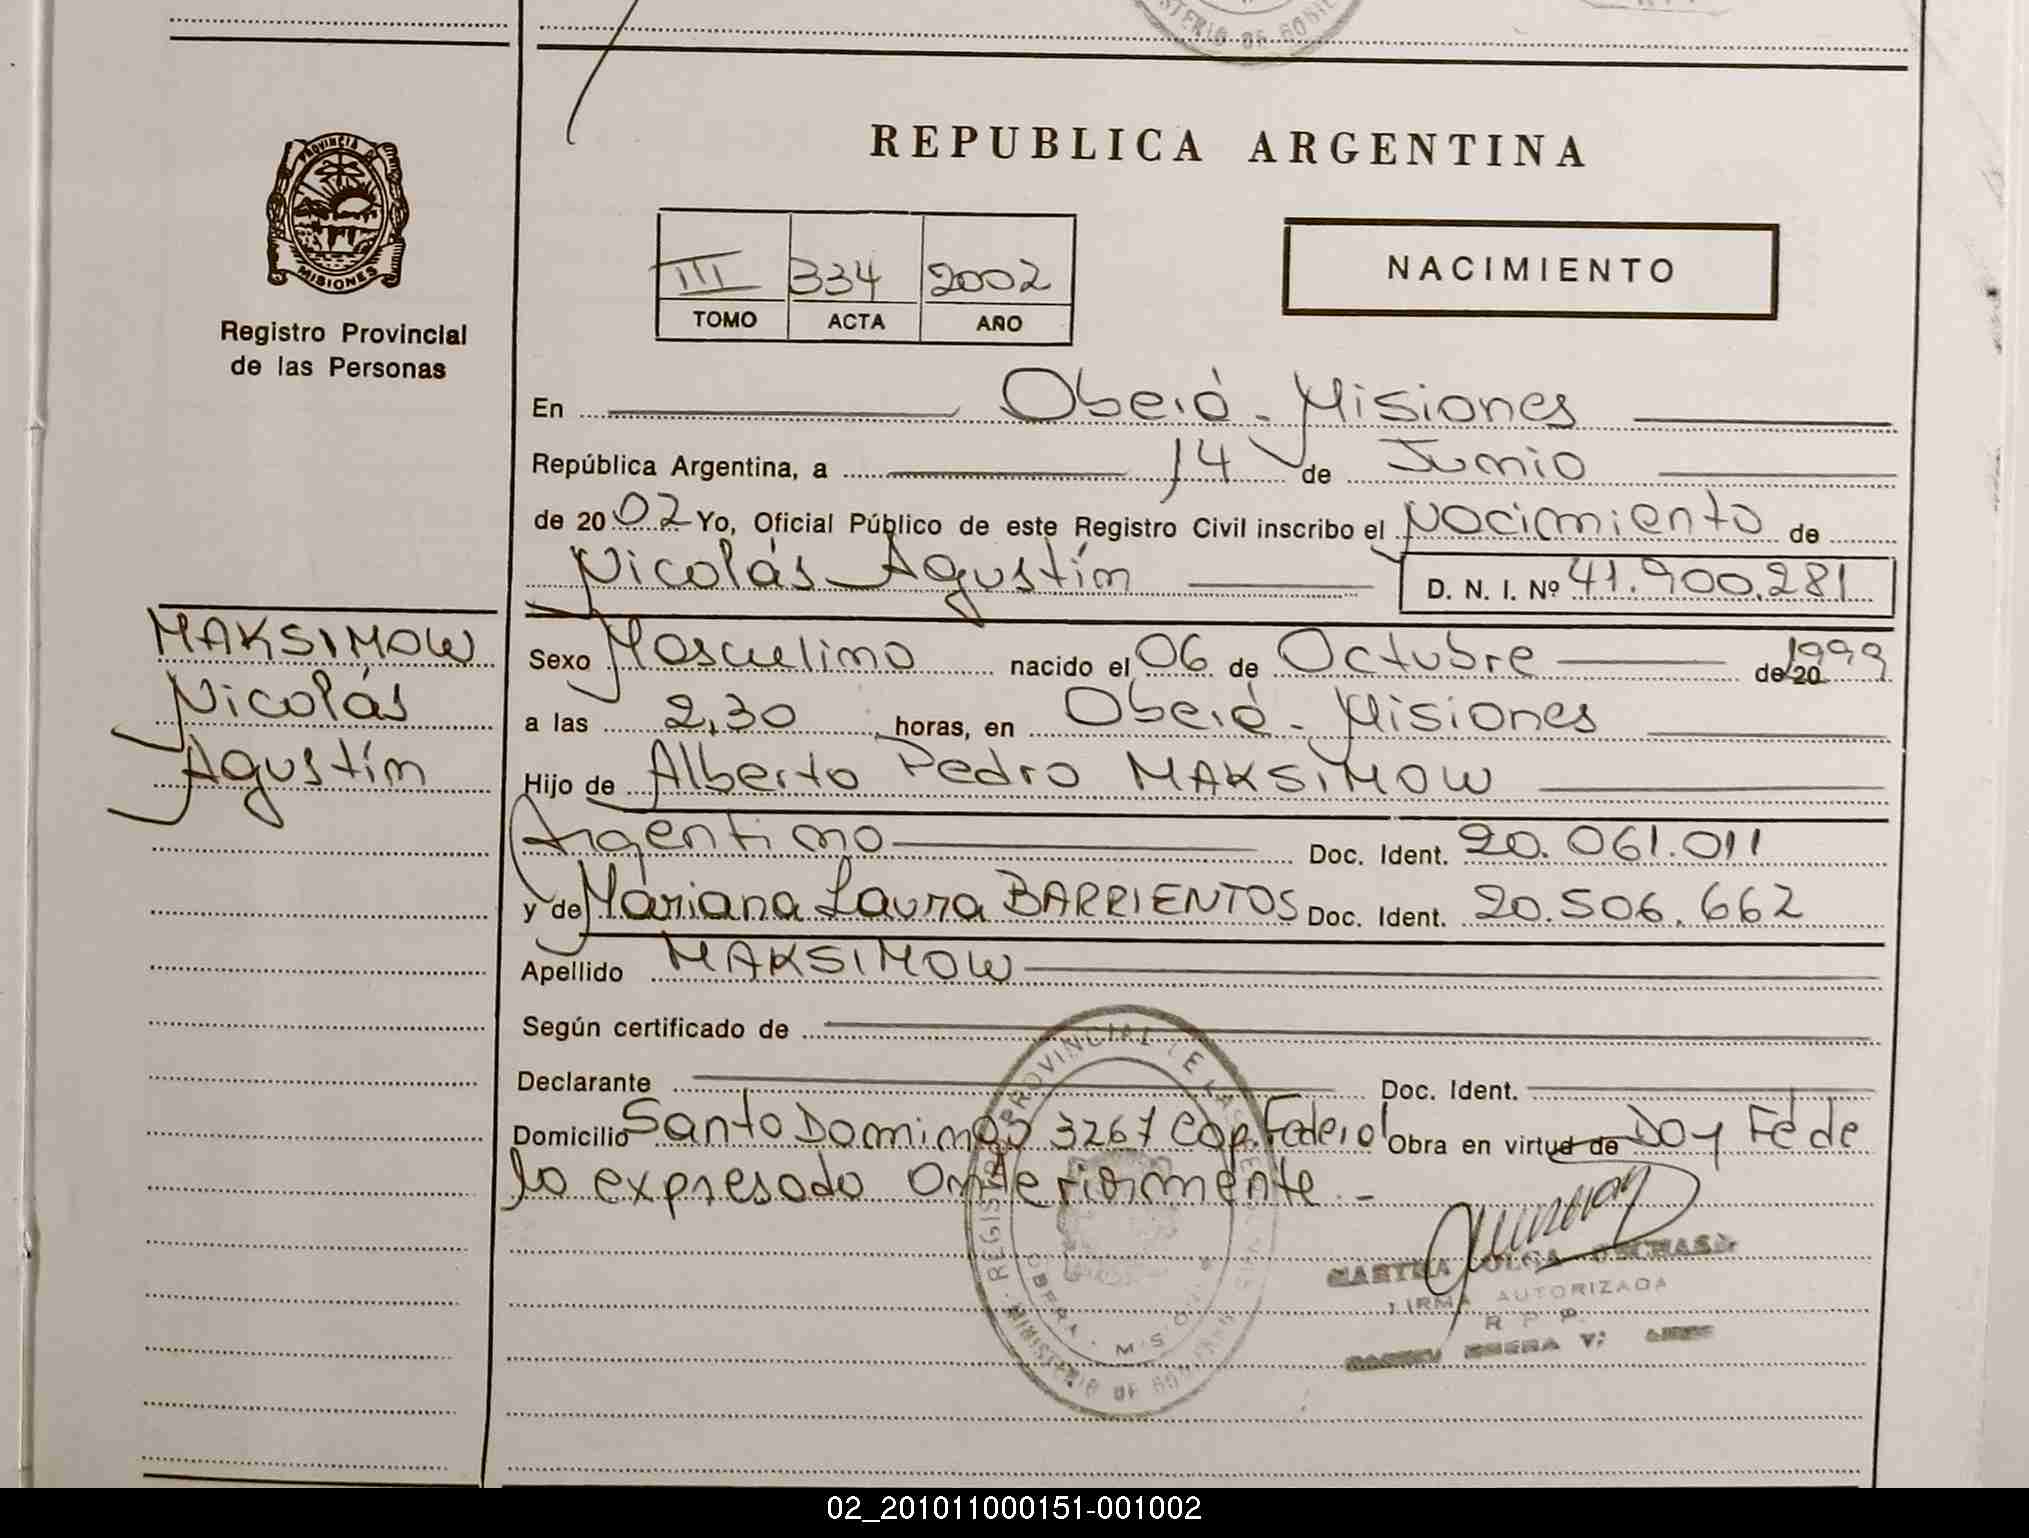 REPUBLICA ARGENTINA
PROVINCIA DE MISIONES
Registro Provincial
de las Personas
III 334 2002
TOMO ACTA AÑO
NACIMIENTO
En Oberá - Misiones
República Argentina, a 14 de Junio
de 2002 Yo, Oficial Público de este Registro Civil inscribo el Nacimiento de
Nicolás Agustín D. N. I. Nº 41.900.281
MAKSIMOW
Nicolás
Agustín
Sexo Masculino nacido el 06 de Octubre de 20 1999
a las 2,30 horas, en Oberá - Misiones
Hijo de Alberto Pedro MAKSIMOW
Argentino Doc. Ident. 20.061.011
y de Mariana Laura BARRIENTOS Doc. Ident. 20.506.662
Apellido MAKSIMOW
Según certificado de
Declarante Doc. Ident.
Domicilio Santo Domingo 3267 Cap. Federal Obra en virtud de Doy Fé de
lo expresado anteriormente -
REGISTRO PROVINCIAL DE LAS PERSONAS
OBERA - MISIONES
MINISTERIO DE GOBIERNO
OLGA
FIRMA AUTORIZADA
R P P
OBERA
02_201011000151-001002